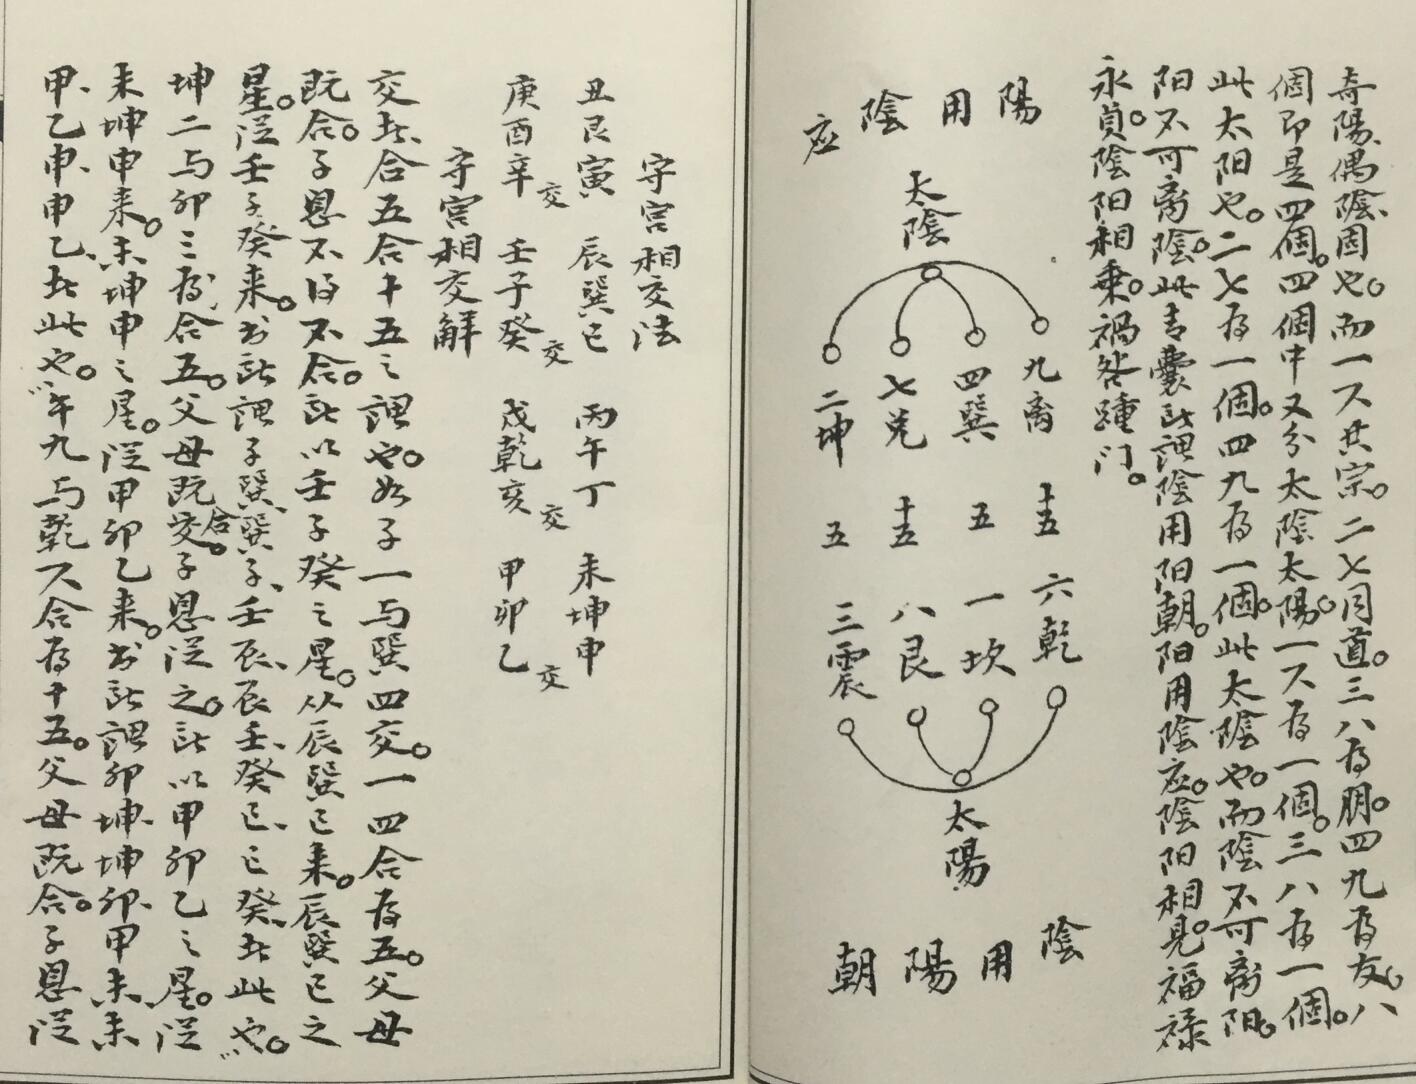 奇陽偶陰固也。而一六共宗。二七同道。三八为朋。四九为友。八
個即是四個。四個中又分太陰太陽。一六为一個。三八为一個。
此太阳也。二七为一個。四九为一個。此太陰也。而陰不可离阳。
阳不可离陰。此青囊所謂陰用阳朝。阳用陰应。陰阳相見。福禄
永貞。陰阳相乗。禍咎踵门。
陽用陰应
太陰
九离 十五 六乾
四巽 五 一坎
七兑 十五 八艮
二坤 五 三震
太陽
陰用陽朝
字宫相交法
丑艮寅 辰巽巳 丙午丁 未坤申
庚酉辛交 壬子癸交 戌乾亥交 甲卯乙交
字宫相交解
交者、合五合十五之謂也。如子一与巽四交。一四合为五。父母
既合。子息不得不合。所以壬子癸之星。从辰巽巳来。辰巽巳之
星。従壬子癸来。书所謂子巽、巽子、壬辰、辰壬、癸巳、巳癸、者此也。
坤二与卯三为合五。父母既交合。子息従之。所以甲卯乙之星。従
未坤申来。未坤申之星。従甲卯乙来。书所謂卯坤、坤卯、甲未、未
甲、乙申、申乙、者此也。午九与乾六合为十五。父母既合。子息従